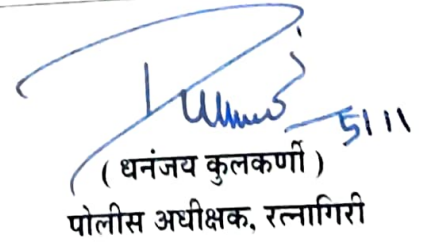 5/11
( धनंजय कुलकर्णी )
पोलीस अधीक्षक, रत्नागिरी